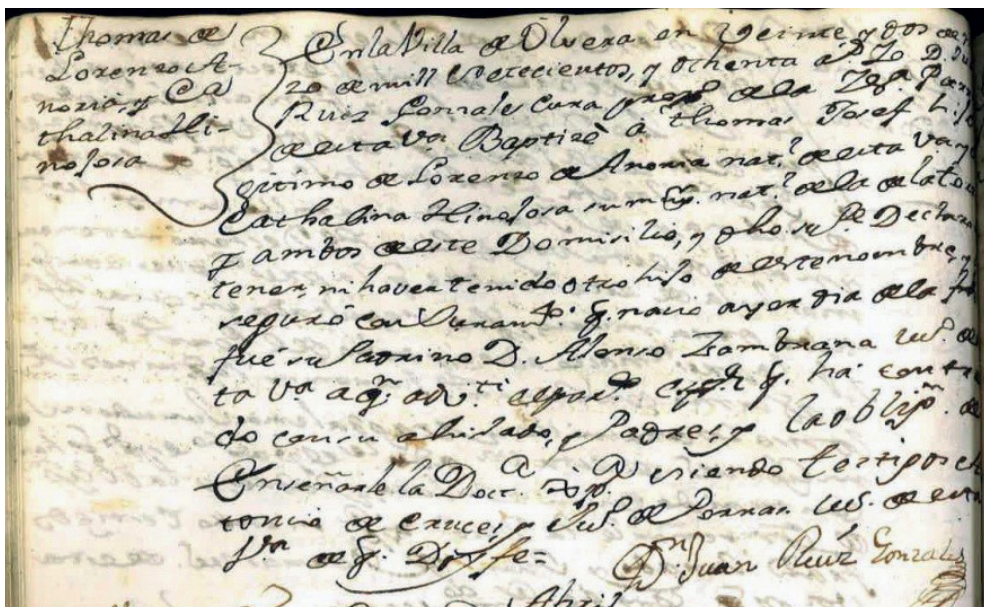 Thomas de
Lorenzo A-
noria, y Ca
thalina Hi-
nojosa
En la Villa de Olvera en veinte y dos de
zo de mill setecientos, y ochenta a.s Yo D.
Ruiz Gonzales Cura prop.o de la Ygl.a
de esta v.a Baptizè à Thomas Josef hijo
gitimo de Lorenzo de Anoria nat.l de esta va y
Cathalina Hinojosa su mug. nat.l de la de la
y ambos de este Domisilio, y dho su P.e
tener, ni haver tenido otro hijo de este nombre, y
seguró con Juram.to q. nació ayer dia de la
fué su Padrino D. Alonso Zambrana
ta V.a a q.n adv.ti el par.co q. ha
do con su ahijado, y Padres, y la oblig.n de
Enseñarle la Doct.a siendo testigos
tonio de Cruces, y de Porras de esta
V.a de q. Doy fe=
D.n Juan Ruiz Gonzales
Abril